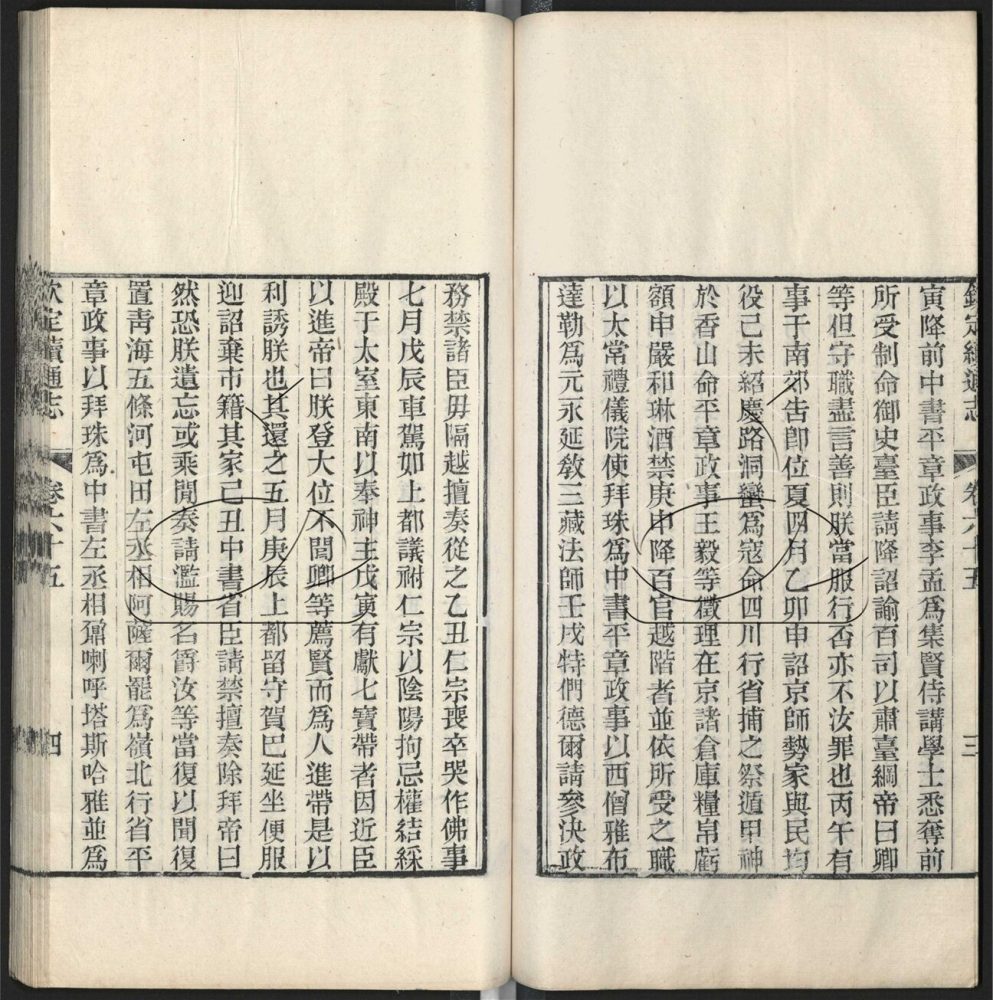 欽定續通志 卷六十五 三
寅降前中書平章政事李孟爲集賢侍講學士悉奪前
所受制命御史臺臣請降詔諭百司以肅臺綱帝曰卿
等但守職盡言善則朕當服行否亦不汝罪也丙午有
事于南郊告卽位夏四月乙卯申詔京師勢家與民均
役己未紹慶路洞蠻爲寇命四川行省捕之祭遁甲神
於香山命平章政事王毅等徵理在京諸倉庫糧帛虧
額申嚴和琳酒禁庚申降百官越階者並依所受之職
以太常禮儀院使拜珠爲中書平章政事以西僧雅布
達勒爲元永延敎三藏法師壬戌特們德爾請參決政
務禁諸臣毋隔越擅奏從之乙丑仁宗喪卒哭作佛事
七月戊辰車駕如上都議祔仁宗以陰陽拘忌權結綵
殿于太室東南以奉神主戊寅有獻七寶帶者因近臣
以進帝曰朕登大位不聞卿等薦賢而爲人進帶是以
利誘朕也其還之五月庚辰上都留守賀巴延坐便服
迎詔棄市籍其家己丑中書省臣請禁擅奏除拜帝曰
然恐朕遺忘或乘閒奏請濫賜名爵汝等當復以聞復
置靑海五條河屯田左丞相阿薩爾罷爲嶺北行省平
章政事以拜珠爲中書左丞相鼐喇呼塔斯哈雅並爲
欽定續通志 卷六十五 四